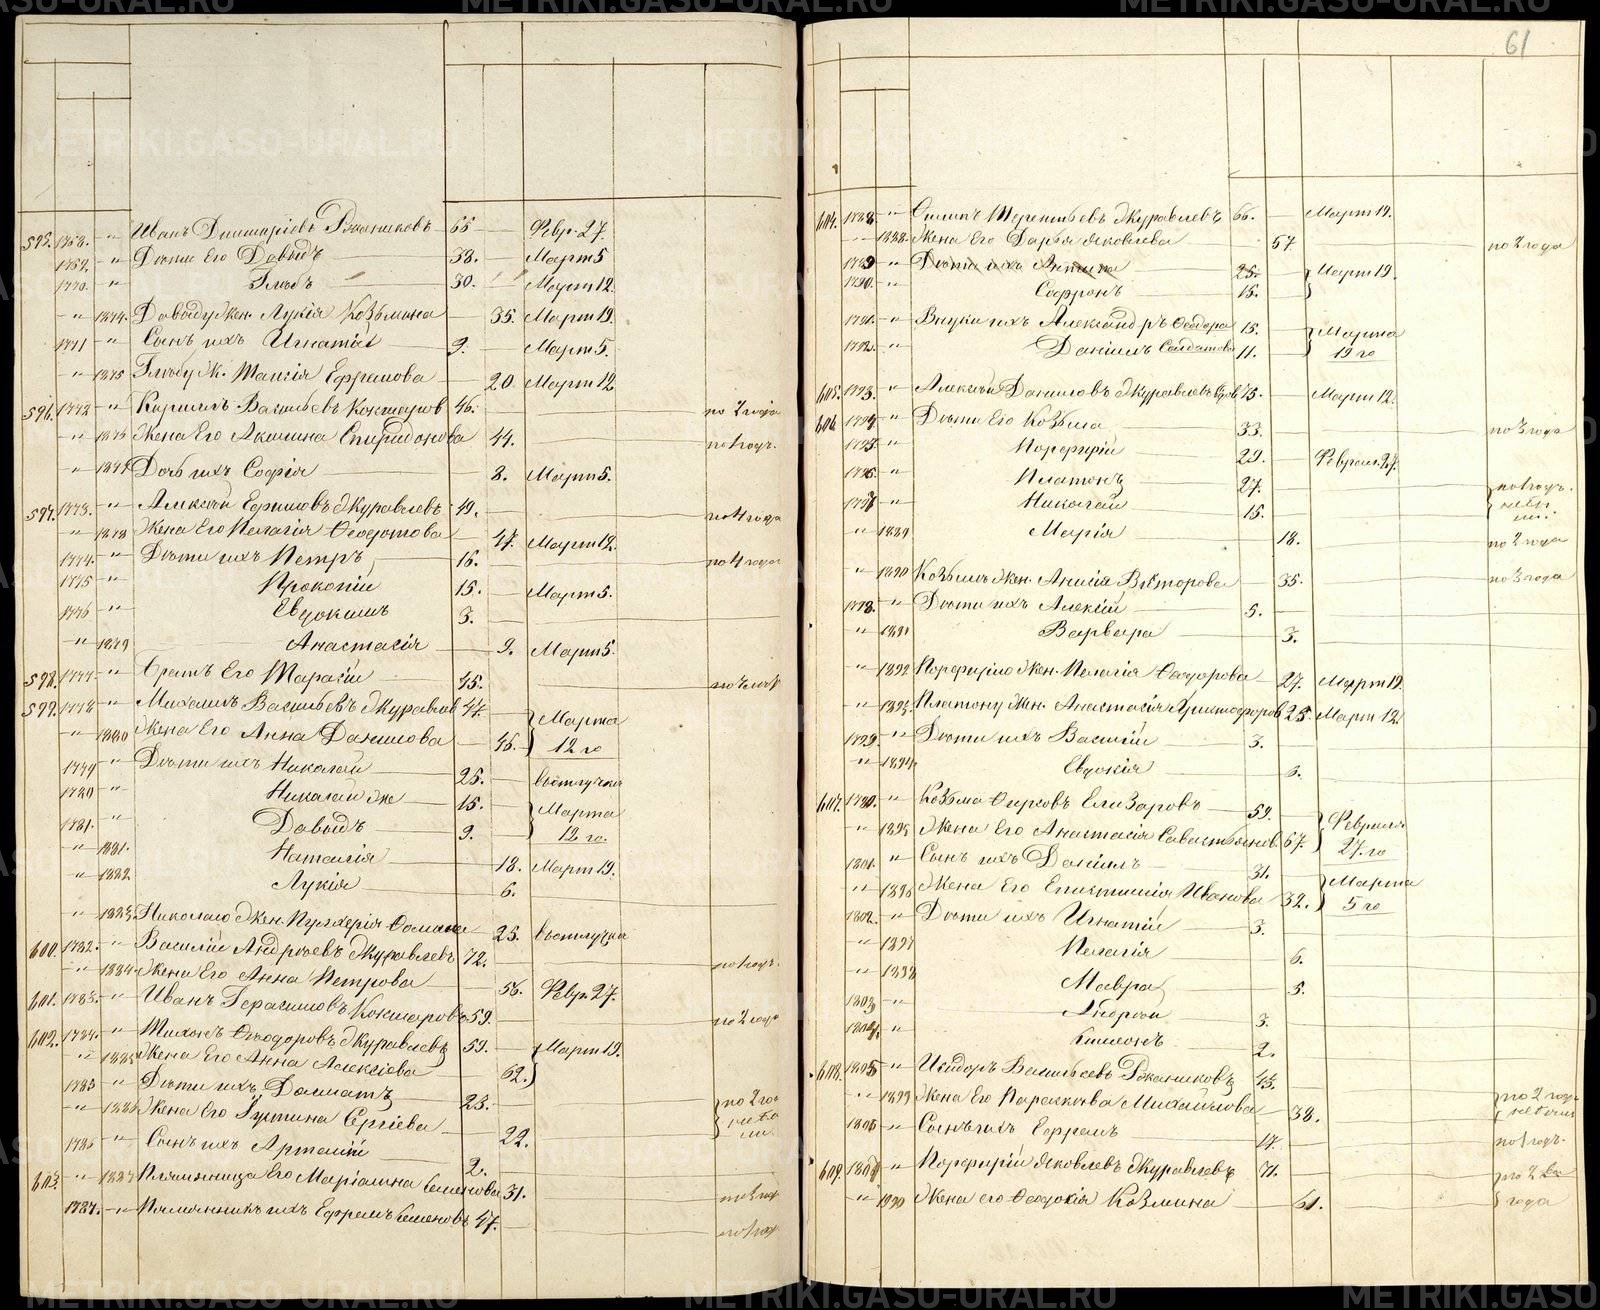 METRIKI.GASU-URAL.RU
61
595. 1768. " Иванъ Димитріевъ 65 Февр. 27.
1769. " Дѣти его Давыдъ 38. Март 5
1770. " Глѣбъ 30. Март 12.
" 1874. Давыду жен. Лукія Козьмина 35. Март 19.
1771 " Сынъ ихъ Игнатій 9. Март 5.
" 1875 Глѣбу ж. Ефремова 20. Март 12
596. 1772 " Кириллъ Васильевъ 46. по 2 года
" 1876 Жена его Акилина Спиридонова 44. по 1 году.
" 1877 Дочь ихъ Софія 8. Март 5.
597. 1773. " Алексѣй Ефимовъ Журавлевъ 49. по 4 года
" 1878 Жена его Пелагія Ѳеодотова 47. Март 12.
1774. " Дѣти ихъ Петръ 16. по 4 года
1775 " Прокопій 15. Март 5.
1776 " Евдокимъ 3.
" 1879 Анастасія 9. Март 5.
598. 1777 " Братъ его Тарасій 45.
599. 1778 " Михаилъ Васильевъ Журавлев 47. Марта
" 1880 Жена его Анна Данилова 46. 12 го
1779 " Дѣти ихъ Николай 25. въ отлучке
1780 " Николай же 15. Марта
1781. " Давыдъ 9. 12 го.
" 1881. Наталія 18. Март 19.
" 1882. Лукія 6.
" 1883. Николаю жен. Пулхерія 25. въ отлучке
600. 1782. " Василій Андреевъ Журавлевъ 72. по 1 году.
" 1884 Жена его Анна Петрова 56. Февр. 27.
601. 1783. " Иванъ Герасимовъ 59. по 2 года
602. 1784. " Ѳеодоровъ Журавлевъ 59. Март 19.
" 1885 Жена его Анна Алексіева 62.
1785 " Дѣти ихъ Далматъ 23. по 2 го
" 1886 Жена его Іустина Сергіева 22.
1786 " Сынъ ихъ 2.
603. " 1887 Племянница его Маріамна Семенова 31.
1787. " Племянникъ ихъ Ефремъ Семеновъ 47.
604. 1788 " Терентьевъ Журавлевъ 66. Март 19.
" 1888. Жена его Дарья Яковлева 57 по 2 года
1789 " Дѣти ихъ 25. Март 19.
1790. " Софронъ 15.
1791. " Внуки ихъ Александръ Ѳеодоров 15. Марта
1792. " Даніилъ 11. 19 го
605. 1793. " Алексѣй Даниловъ Журавлевъ 75. Март 12.
606. 1794 " Дѣти его Козьма 33. по 3 года
1795 " Порфирій 29. Феврал. 27.
1796 " Платонъ 27. по 1 году.
1797 " Николай 15.
" 1889 Марія 18. по 2 года
" 1890 Козьмы жен. Анисія Викторова 35. по 3 года
1798. " Дѣти ихъ Алексій 5.
" 1891 Варвара 3.
" 1892 Порфирію жен. Пелагія Ѳеодорова 27. Март 19.
" 1893. Платону жен. Анастасія Христофоров 25. Март 12
1799. " Дѣти ихъ Василій 3.
" 1894 Евдокія 6.
607. 1780. " Козьма Елизаровъ 59. Февраля
" 1895 Жена его Анастасія 67. 27. го
1801. " Сынъ ихъ Даніилъ 31. Марта
" 1896 Жена его Епистимія Иванова 32. 5 го
1802. " Дѣти ихъ Игнатій 3.
" 1897 Пелагія 6.
" 1898 Мавра 5.
1803 " Андрей 3.
1804. " Симеонъ 2.
608. 1805 " Исидоръ Васильевъ 43.
" 1899 Жена его Параскева Михайлова 38. по 2 года
1806 " Сынъ ихъ Ефремъ 17. по 1 году.
609. 1807 " Порфирій Яковлевъ Журавлевъ 71. по 2
" 1900 Жена его Ѳеодосія Козмина 61. года
METRIKI.GASU-URAL.RU